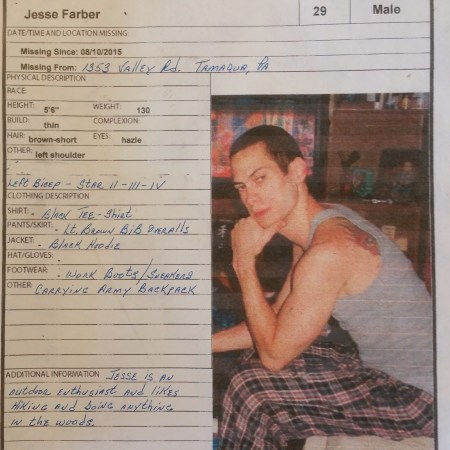 Jesse Farber 29 Male
DATE/TIME AND LOCATION MISSING:
Missing Since: 08/10/2015
Missing From: 1353 Valley Rd. TAMAQUA, PA
PHYSICAL DESCRIPTION
RACE:
HEIGHT: 5'6" WEIGHT: 130
BUILD: thin COMPLEXION
HAIR: brown-short EYES: hazle
OTHER: left shoulder
Left Bicep - STAR II-III-IV
CLOTHING DESCRIPTION
SHIRT - Black TEE-Shirt
PANTS/SKIRT: - Lt. Brown BiB OVERALLS
JACKET - Black Hoodie
HAT/GLOVES:
FOOTWEAR: - WORK BOOTS/SNEAKERS
OTHER CARRYING ARMY BACKPACK
ADDITIONAL INFORMATION JESSE is AN
outdoor enthusiast and likes
Hiking and doing anything
in the woods.